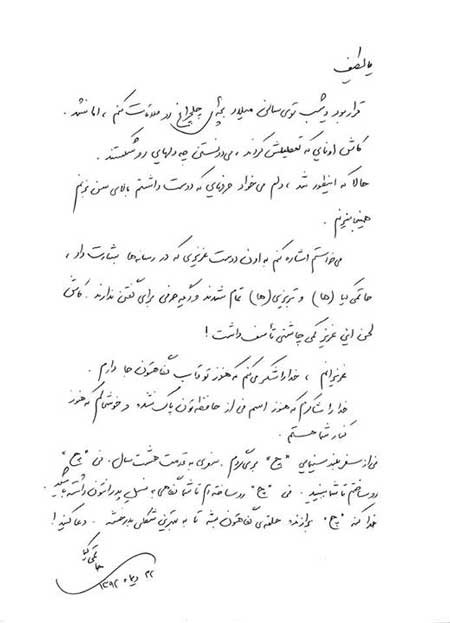 یا لطیف
قرار بود دیشب توی سالن میلاد بچه‌های چلچراغ رو ملاقات کنم ، اما نشد .
کاش اونایی که تعطیلش کردند ، می‌دونستن چه دلهایی رو شکستند .
حالا که اینطور شد ، دلم می‌خواد حرفهایی که دوست داشتم بالای سن بزنم
همینجا بزنم .
می‌خواستم اشاره کنم به اون دوست عزیزی که در رسانه‌ها بشارت داد ،
حاتمی کیا (ها) و تبریزی (ها) تمام شدند و دیگه حرفی برای گفتن ندارند . کاش
لحن این عزیز کمی چاشنی تأسف داشت !
عزیزانم ، خدا را شکر می‌کنم که هنوز تو قاب نگاهتون جا دارم .
خدا را شاکرم که هنوز اسم من از حافظه‌تون پاک نشده و خوشحالم که هنوز
کنار شما هستم .
من از سفر بلند سینمایی "چ" برمی‌گردم . سفری به قدمت هشت سال . من "چ"
رو ساختم تا شما ببینید . من "چ" رو ساخته‌ام تا شما نگاهی به نسل پدرانتون داشته باشید .
خدا کنه "چ" برازنده حلقه‌ی نگاهتون بشه تا به بهترین شکلی بدرخشه . دعا کنید !
حاتمی کیا
۲۲ دیماه ۱۳۹۲